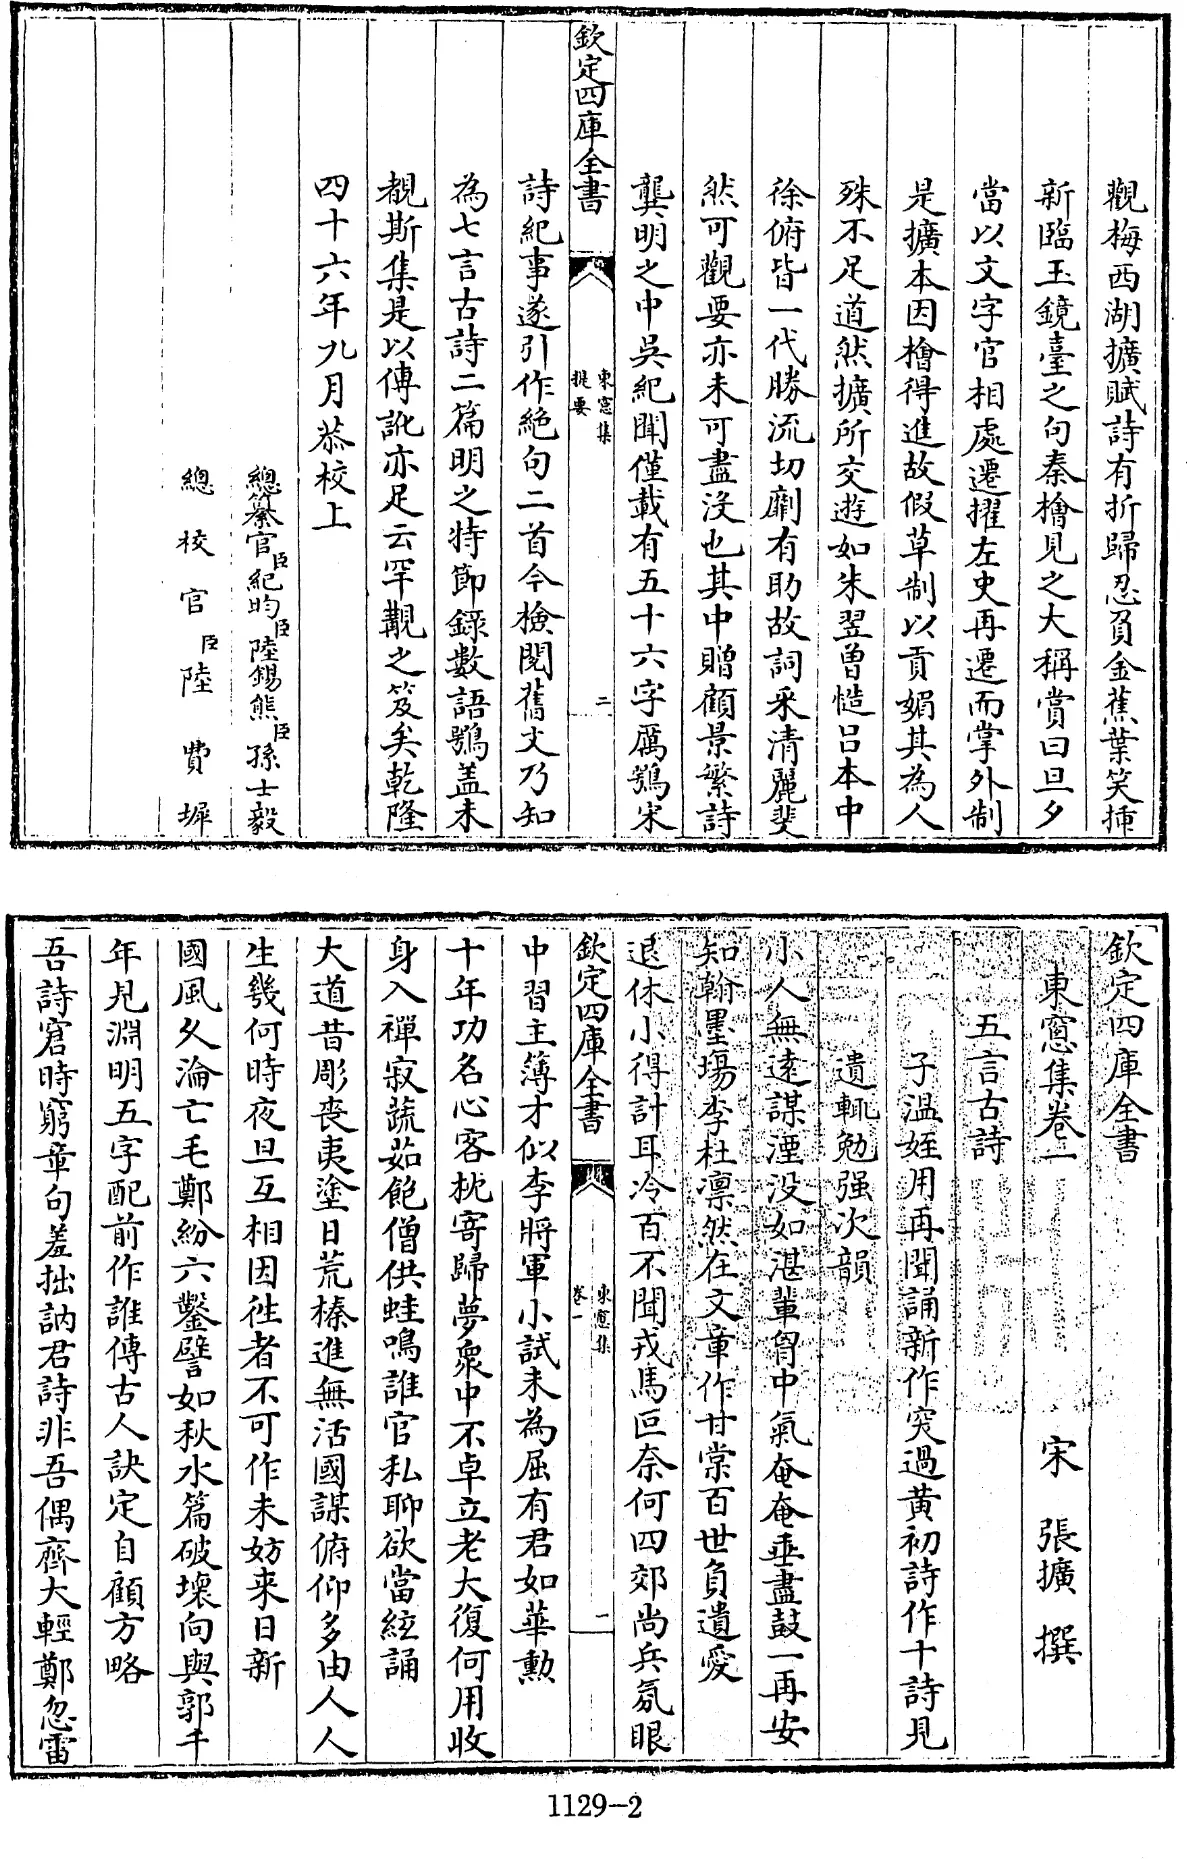 觀梅西湖擴賦詩有折歸忍負金蕉葉笑揷
新臨玉鏡臺之句秦檜見之大稱賞曰旦夕
當以文字官相處遷擢左史再遷而掌外制
是擴本因檜得進故假草制以貢媚其為人
殊不足道然擴所交遊如朱翌曾慥呂本中
徐俯皆一代勝流切劘有助故詞采清麗斐
然可觀要亦未可盡沒也其中贈顧景繁詩
龔明之中吳紀聞僅載有五十六字厲鶚宋
欽定四庫全書
東窻集
提要
二
詩紀事遂引作絶句二首今檢閱舊文乃知
為七言古詩二篇明之特節錄數語鶚盖未
覩斯集是以傳訛亦足云罕覯之笈矣乾隆
四十六年九月恭校上
總纂官臣紀昀臣陸錫熊臣孫士毅
總校官臣陸費墀
欽定四庫全書
東窻集卷一
宋 張擴 撰
五言古詩
子溫姪用再聞誦新作突過黃初詩作十詩見
遺輒勉强次韻
小人無遠謀湮没如湛輩胷中氣奄奄垂盡鼓一再安
知翰墨塲李杜凛然在文章作甘棠百世負遺愛
退休小得計耳冷百不聞戎馬叵奈何四郊尚兵氛眼
欽定四庫全書
東窻集
卷一
一
中習主簿才似李將軍小試未為屈有君如華勳
十年功名心客枕寄歸夢衆中不卓立老大復何用收
身入禪寂蔬茹飽僧供蛙鳴誰官私聊欲當絃誦
大道昔彫喪夷塗日荒榛進無活國謀俯仰多由人人
生幾何時夜旦互相因徃者不可作未妨来日新
國風久淪亡毛鄭紛六鑿譬如秋水篇破壞向與郭千
年見淵明五字配前作誰傳古人訣定自顧方略
吾詩窘時窮章句羞拙訥君詩非吾偶齊大輕鄭忽雷
1129-2